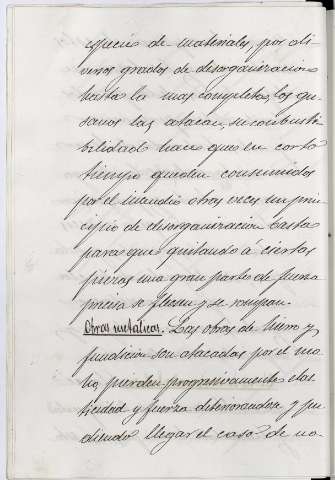 especie de materiales, por di-
versos grados de desorganizacion
hasta la mas completa, los gu-
sanos las atacan, su combusti-
bilidad hace que en corto
tiempo queden consumidos
por el incendio otras veces un prin-
cipio de desorganizacion basta
para que quitando á ciertas
piezas una gran parte de fuerza
precisa se flexen y se rompan.
Obras metálicas. Las obras de hierro y
fundicion son atacadas por el mo-
ho, pierden progresivamente elas-
ticidad y fuerza deteriorandose y pu-
diendo llegar el caso de no-